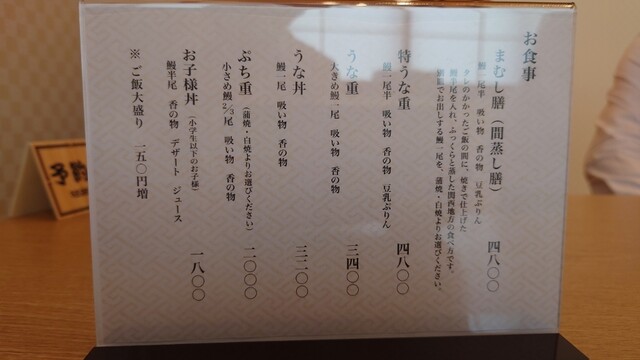 お食事
まむし膳（間蒸し膳）
鰻一尾半 吸い物 香の物 豆乳ぷりん
四八〇〇
タレのかかったご飯の間に、焼きで仕上げた
鰻半尾を入れ、ふっくらと蒸した関西地方の食べ方です。
別皿でお出しする鰻一尾を、蒲焼・白焼よりお選びください。
特うな重
鰻一尾半 吸い物 香の物 豆乳ぷりん
四八〇〇
うな重
大きめ鰻一尾 吸い物 香の物
三四〇〇
うな丼
鰻一尾 吸い物 香の物
三二〇〇
ぷち重（蒲焼・白焼よりお選びください）
小さめ鰻2/3尾 吸い物 香の物
二〇〇〇
お子様丼（小学生以下のお子様）
鰻半尾 香の物 デザート ジュース
一八〇〇
※ご飯大盛り 一五〇円増
予約